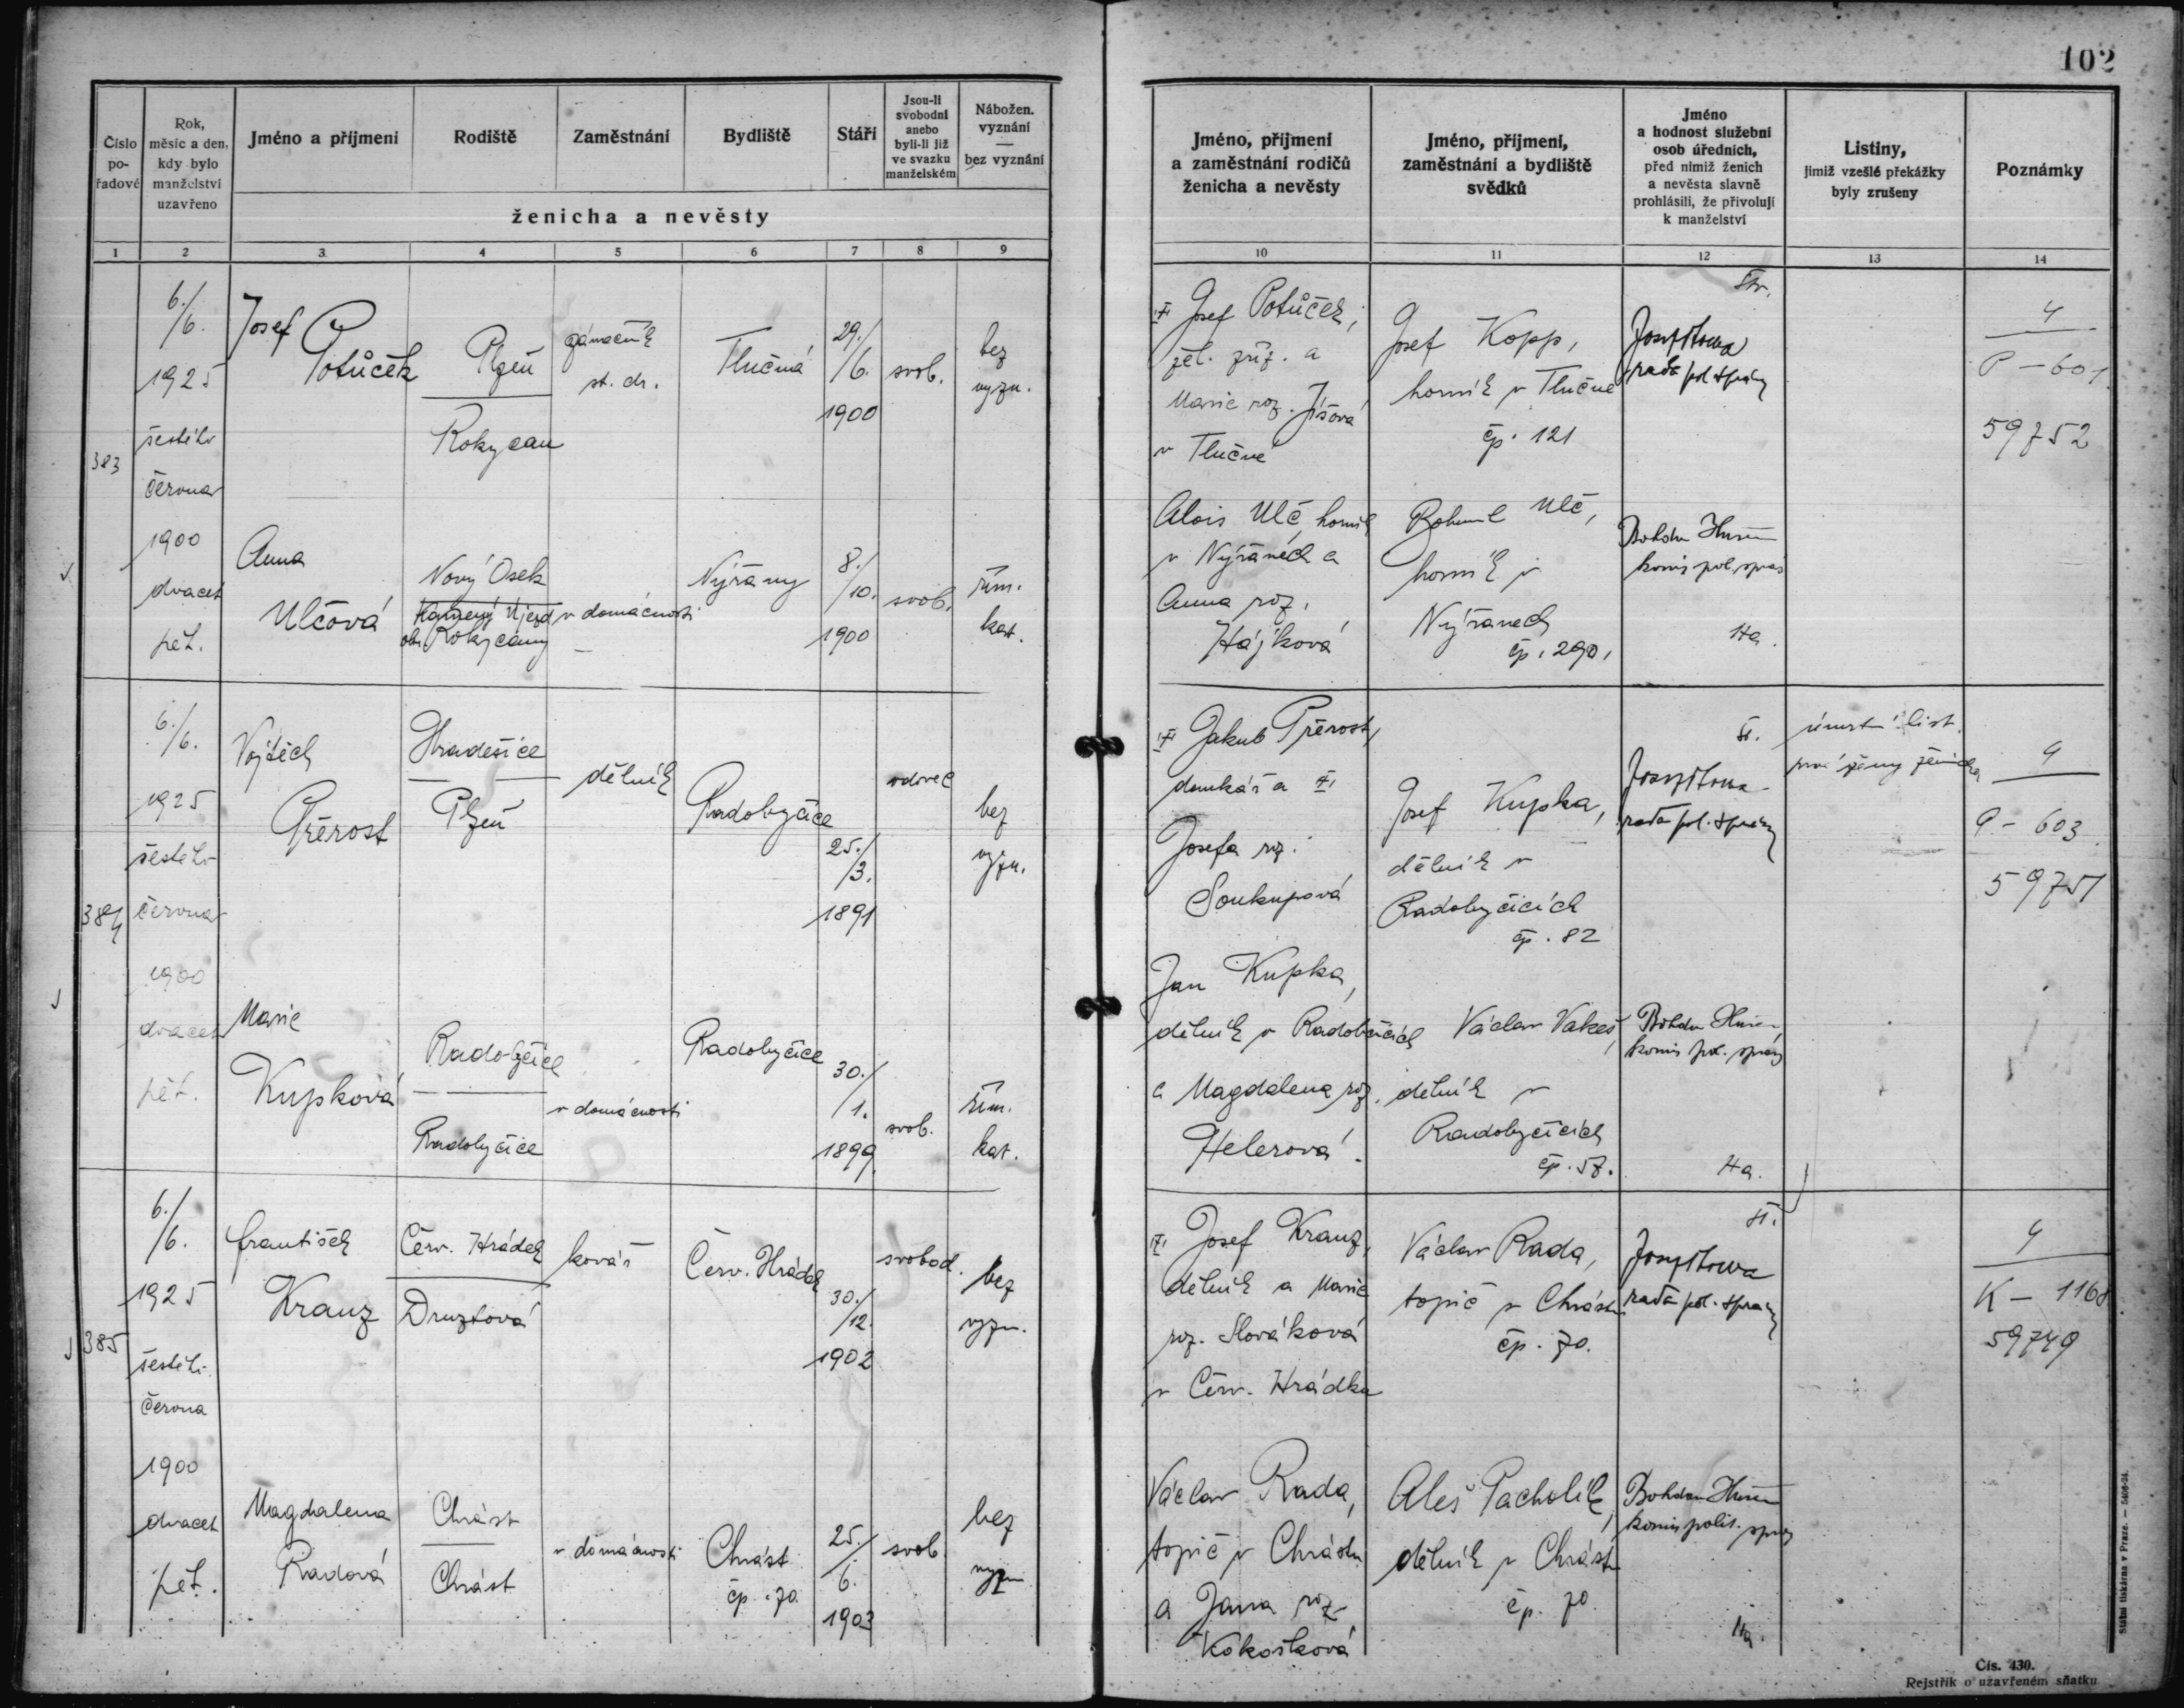 102
Číslo
po-
řadové
Rok,
měsíc a den,
kdy bylo
manželství
uzavřeno
Jméno a příjmení
Rodiště
Zaměstnání
Bydliště
Stáří
Jsou-li
svobodni
anebo
byli-li již
ve svazku
manželském
Nábožen.
vyznání
—
bez vyznání
ženicha a nevěsty
Jméno, příjmení
a zaměstnání rodičů
ženicha a nevěsty
Jméno, příjmení,
zaměstnání a bydliště
svědků
Jméno
a hodnost služební
osob úředních,
před nimiž ženich
a nevěsta slavně
prohlásili, že přivolují
k manželství
Listiny,
jimiž vzešlé překážky
byly zrušeny
Poznámky
1 2 3 4 5 6 7 8 9 10 11 12 13 14
383
6./
/6.
1925
šestého
června
1900
dvacet
pět.
Josef
Potůček
Plzeň
Rokycan
st. dr.
Tlučná
29./
/6.
1900
svob.
bez
vyzn.
Josef Potůček,
žel. zříz. a
Marie roz. Jíšová
v Tlučné
Josef Kopp,
horník v Tlučné
čp. 121
rada pol. správy
4
P – 601
59752
Anna
Ulčová
Nový Osek
Kamenný Újezd
obs. Rokycany
v domácnosti
Nýřany
8./
/10.
1900
svob.
řím.
kat.
Alois Ulč, horník
v Nýřanech a
Anna roz.
Hájková
Bohumil Ulč,
horník v
Nýřanech
čp. 290,
Bohdan
komis. pol. správ
Ha.
384
6./
/6.
1925
šestého
června
1900
dvacet
pět.
Vojtěch
Přerost
Hradešice
Plzeň
dělník
Radobyčice
25./
/3.
1891
vdovec
bez
vyzn.
Jakub Přerost,
domkář a
Josefa roz.
Soukupová
Josef Kupka,
dělník v
Radobyčicích
čp. 82
rada pol. správy
úmrtní list
prvé ženy ženicha
4
P – 603
59751
Marie
Kupková
Radobyčice
Radobyčice
v domácnosti
Radobyčice
30./
/1.
1899.
svob.
řím.
kat.
Jan Kupka,
dělník v Radobčicích
a Magdalena roz.
Helerová.
Václav Vakeš,
dělník v
Radobyčicích
čp. 57.
Bohdan
komis. pol. správy
Ha.
385
6./
/6.
1925
šestého
června
1900
dvacet
pět.
František
Kranz
Červ. Hrádek
Druztová
kovář
Červ. Hrádek
30./
/12.
1902
svobod.
bez
vyzn.
Josef Kranz,
dělník a Marie
roz. Slováková
v Červ. Hrádku
Václav Rada,
topič v Chrástu
čp. 70.
rada pol. správy
4
K – 1168
59749
Magdalena
Radová
Chrást
Chrást
v domácnosti
Chrást
čp. 70
25./
/6.
1903
svob.
bez
vyzn
Václav Rada,
topič v Chrástu
a Jana roz.
Kokošková
Aleš Pacholík,
dělník v Chrástu
čp. 70
Bohdan
komis. polit. správy
Ha.
Státní tiskárna v Praze. — 5406-24.
Čís. 430.
Rejstřík o uzavřeném sňatku